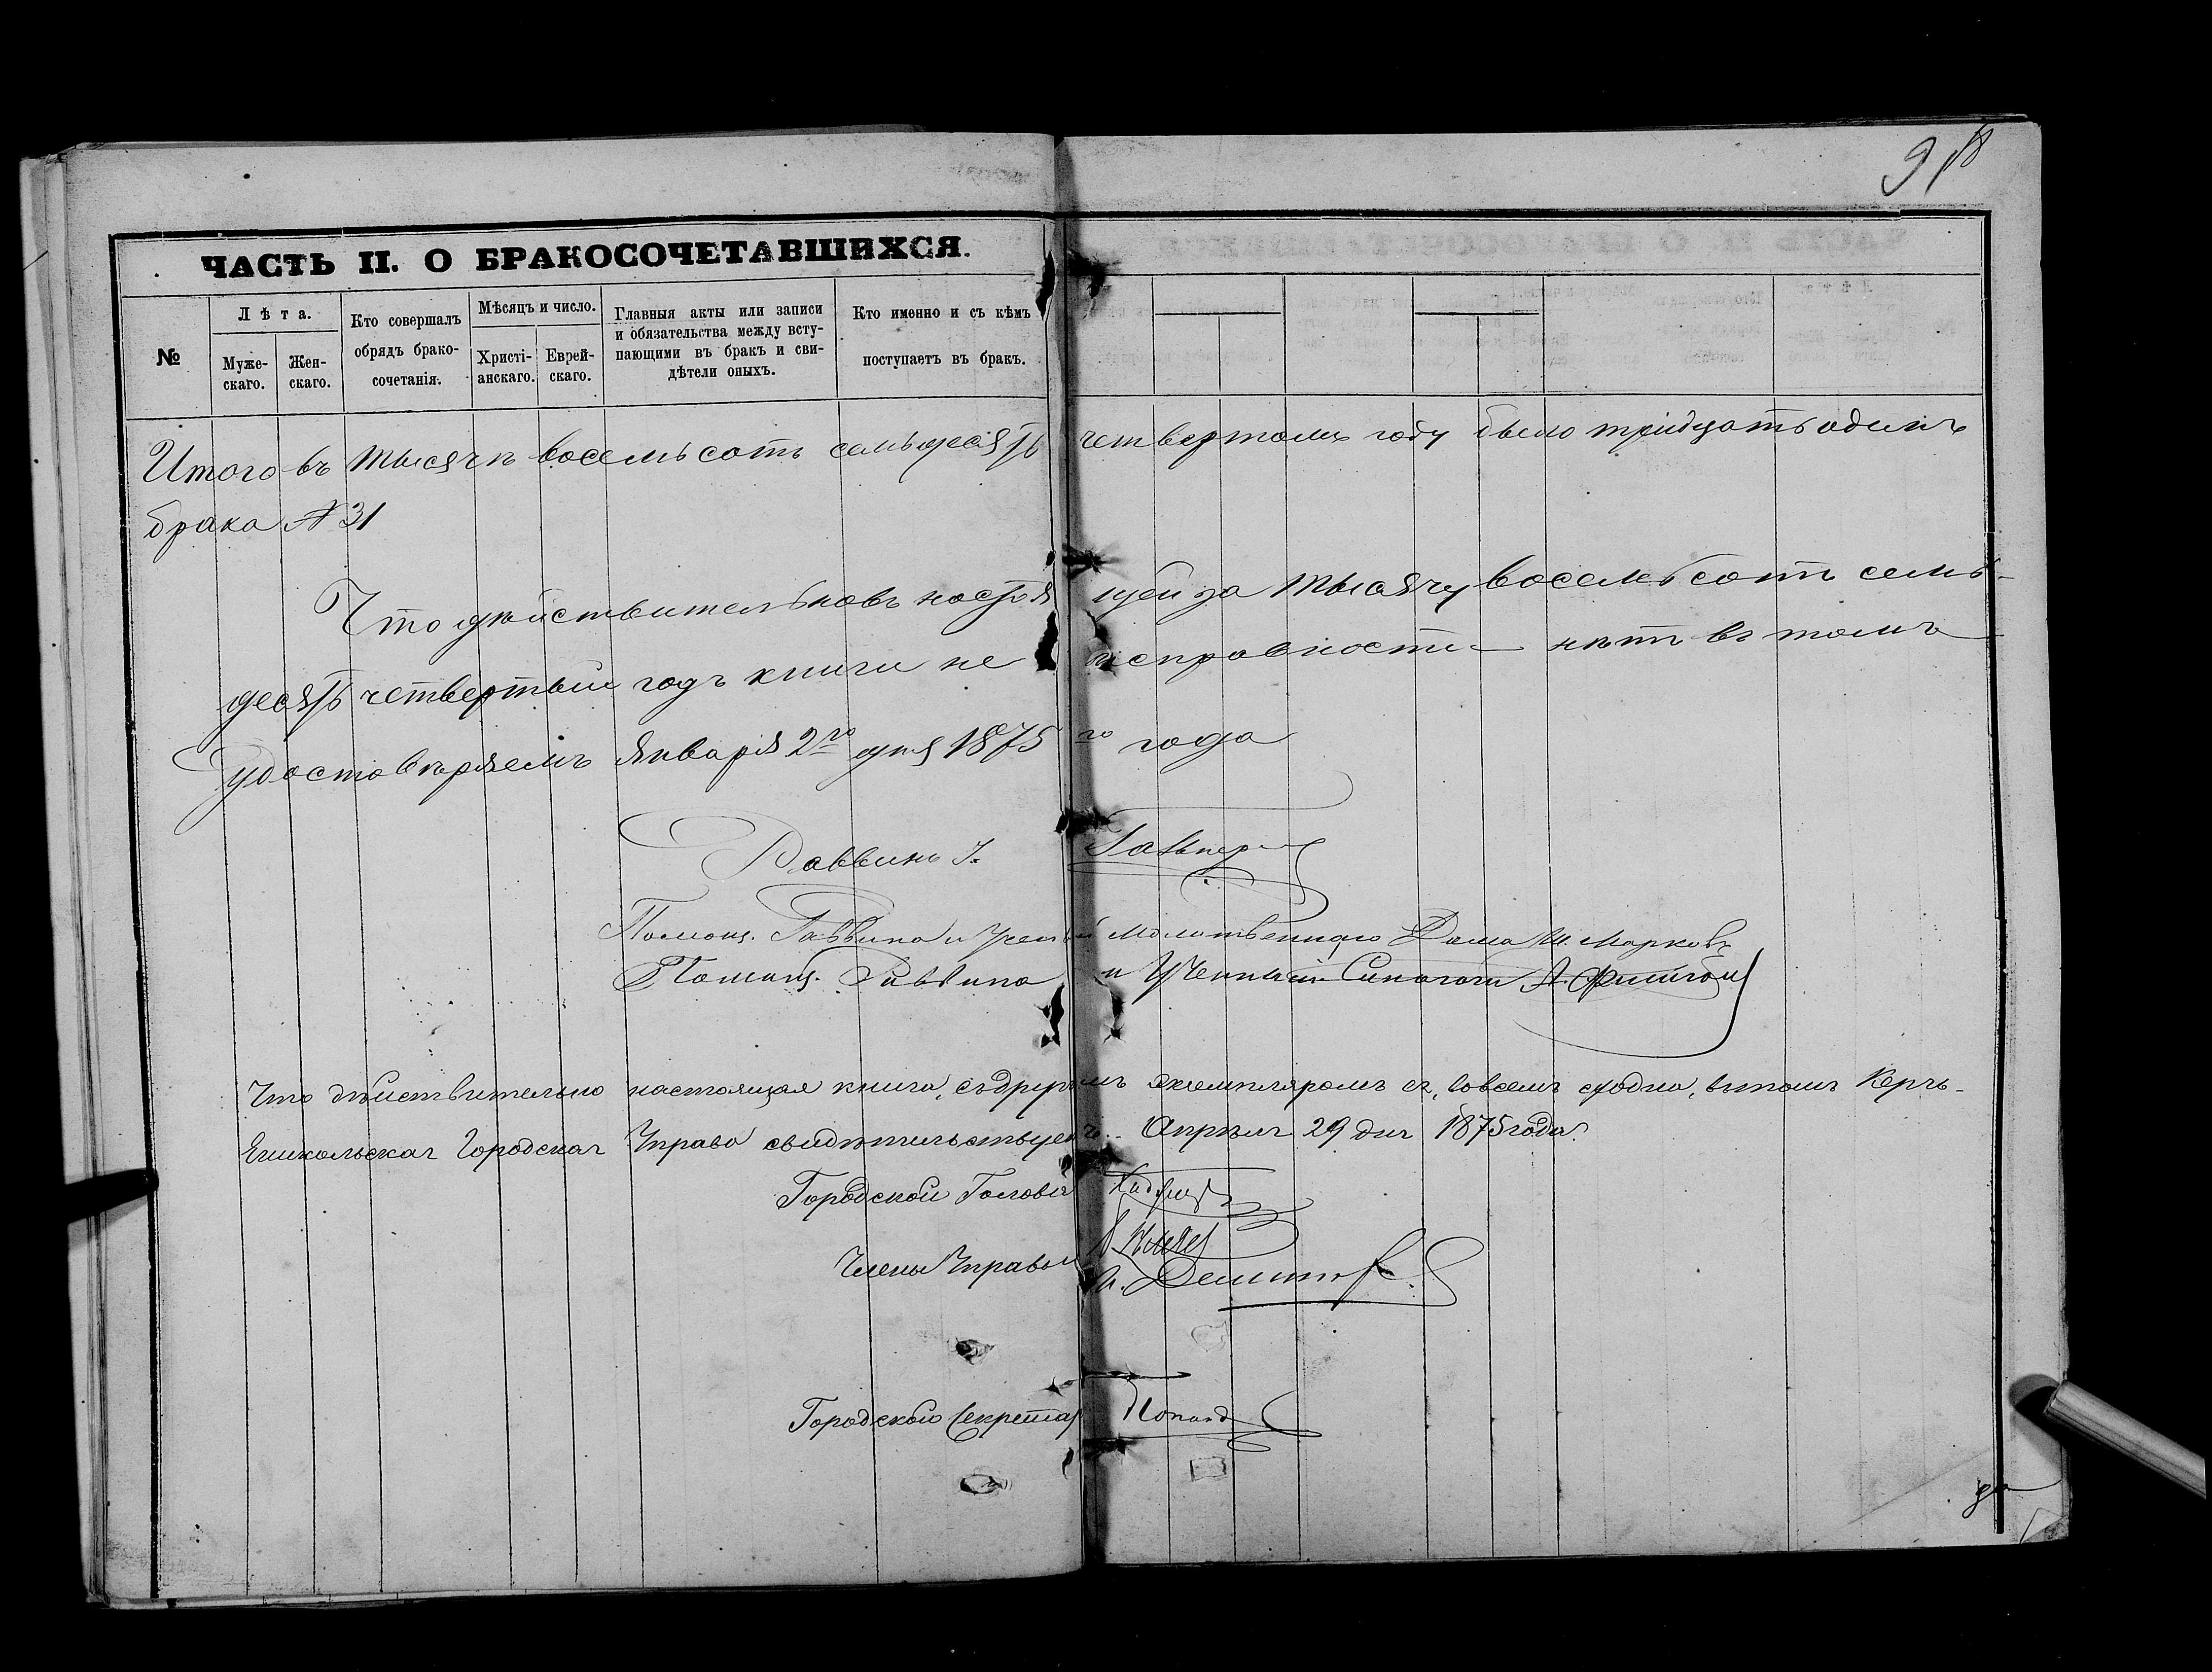 9 18
ЧАСТЬ II. О БРАКОСОЧЕТАВШИХСЯ.
№
Лѣта.
Муже-
скаго.
Жен-
скаго.
Кто совершалъ
обрядъ брако-
сочетанія.
Мѣсяцъ и число.
Христі-
анскаго.
Еврей-
скаго.
Главныя акты или записи
и обязательства между всту-
пающими въ бракъ и сви-
дѣтели оныхъ.
Кто именно и съ кѣмъ
поступаетъ въ бракъ.
Итого въ тысячѣ восемьсотъ семьдесятъ четвертомъ году было тридцать одинъ
брака № 31
Что дѣйствительно въ настоящей за тысячу восемьсотъ семь-
десятъ четвертый годъ книги не исправности нѣтъ въ томъ
удостовѣряемъ Января 2го дня 1875го года
Раввинъ I. Гальпер
Помощ. Раввина и Учен. Молитвеннаго Дома Ш. Марковъ
Помощ. Раввина и Ученный Синагоги
Что дѣйствительно настоящая книга, съ другимъ экземпляромъ ея, совсемъ сходна, въ томъ Керчь-
Еникольская Городская Управа свидѣтельствуетъ. Апрѣля 29 дня 1875 года.
Городской Голова
Члены Управы
Городской Секретарь